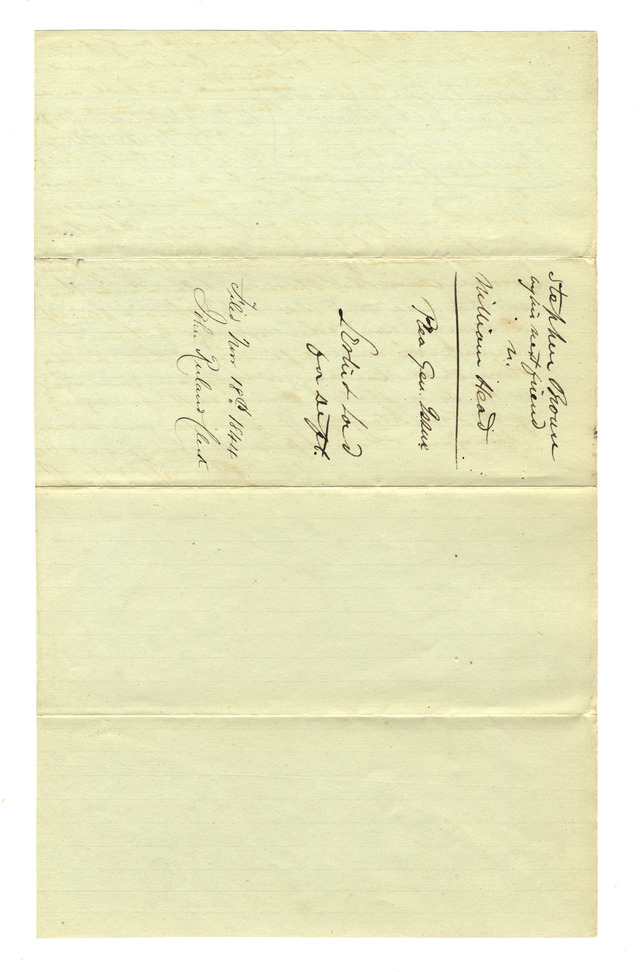 Stephen Brown
by his next friend
vs.
William Head
Plea Gen. Issue
Leslie & Lord
for deft.
Filed Nov 18th 1844
John Ruland Clerk